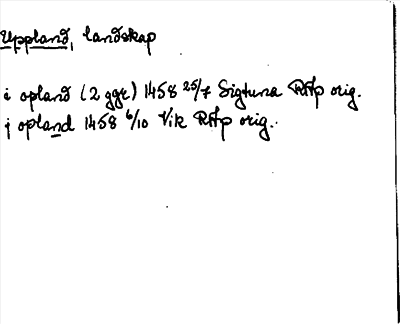 Uppland, landskap
i opland (2 ggr) 1458 25/7 Sigtuna RAp orig.
j opland 1458 6/10 Vik RAp orig.